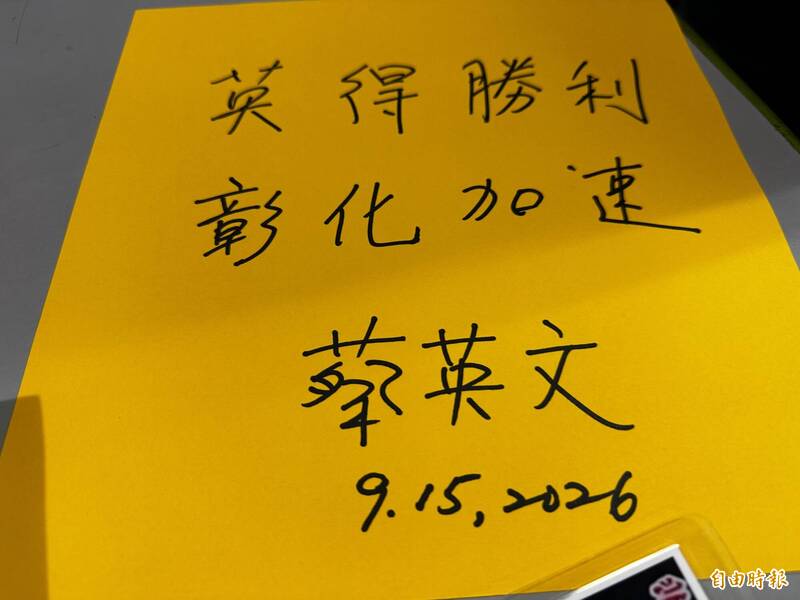 英得勝利
彰化加速
蔡英文
9.15,2026
自由時報